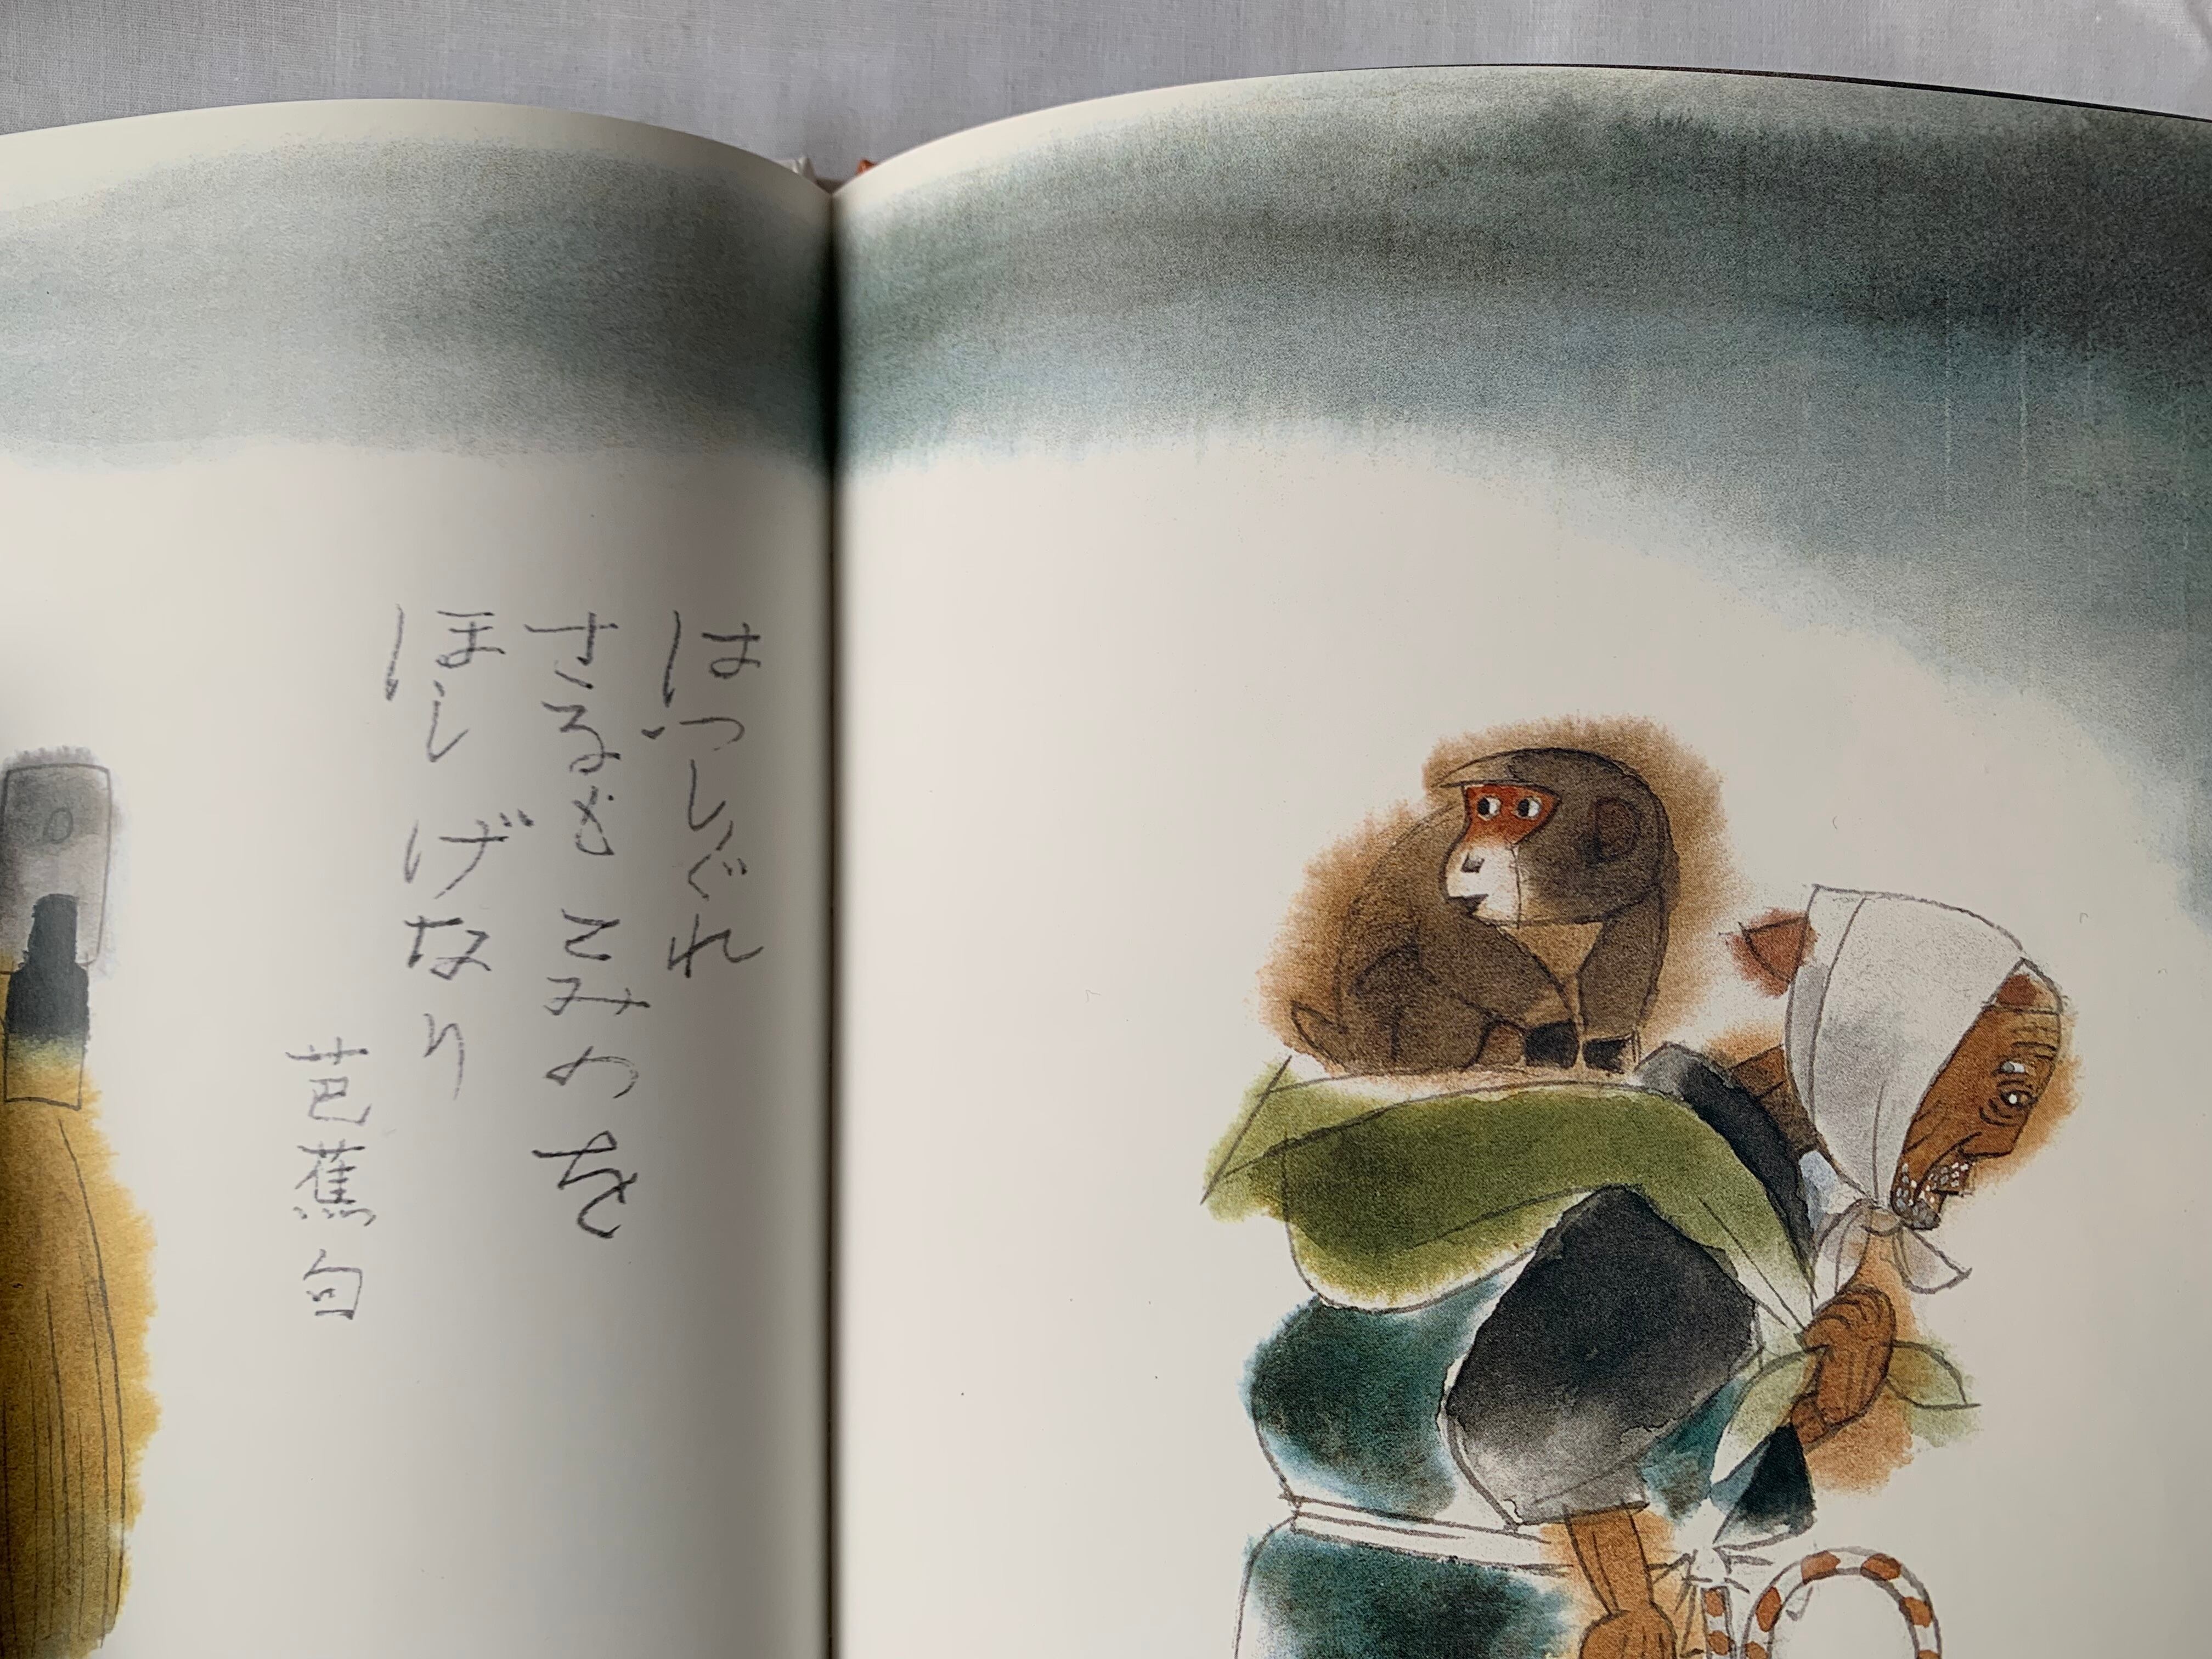 はつしぐれ
さるもこみのを
ほしげなり
芭蕉句